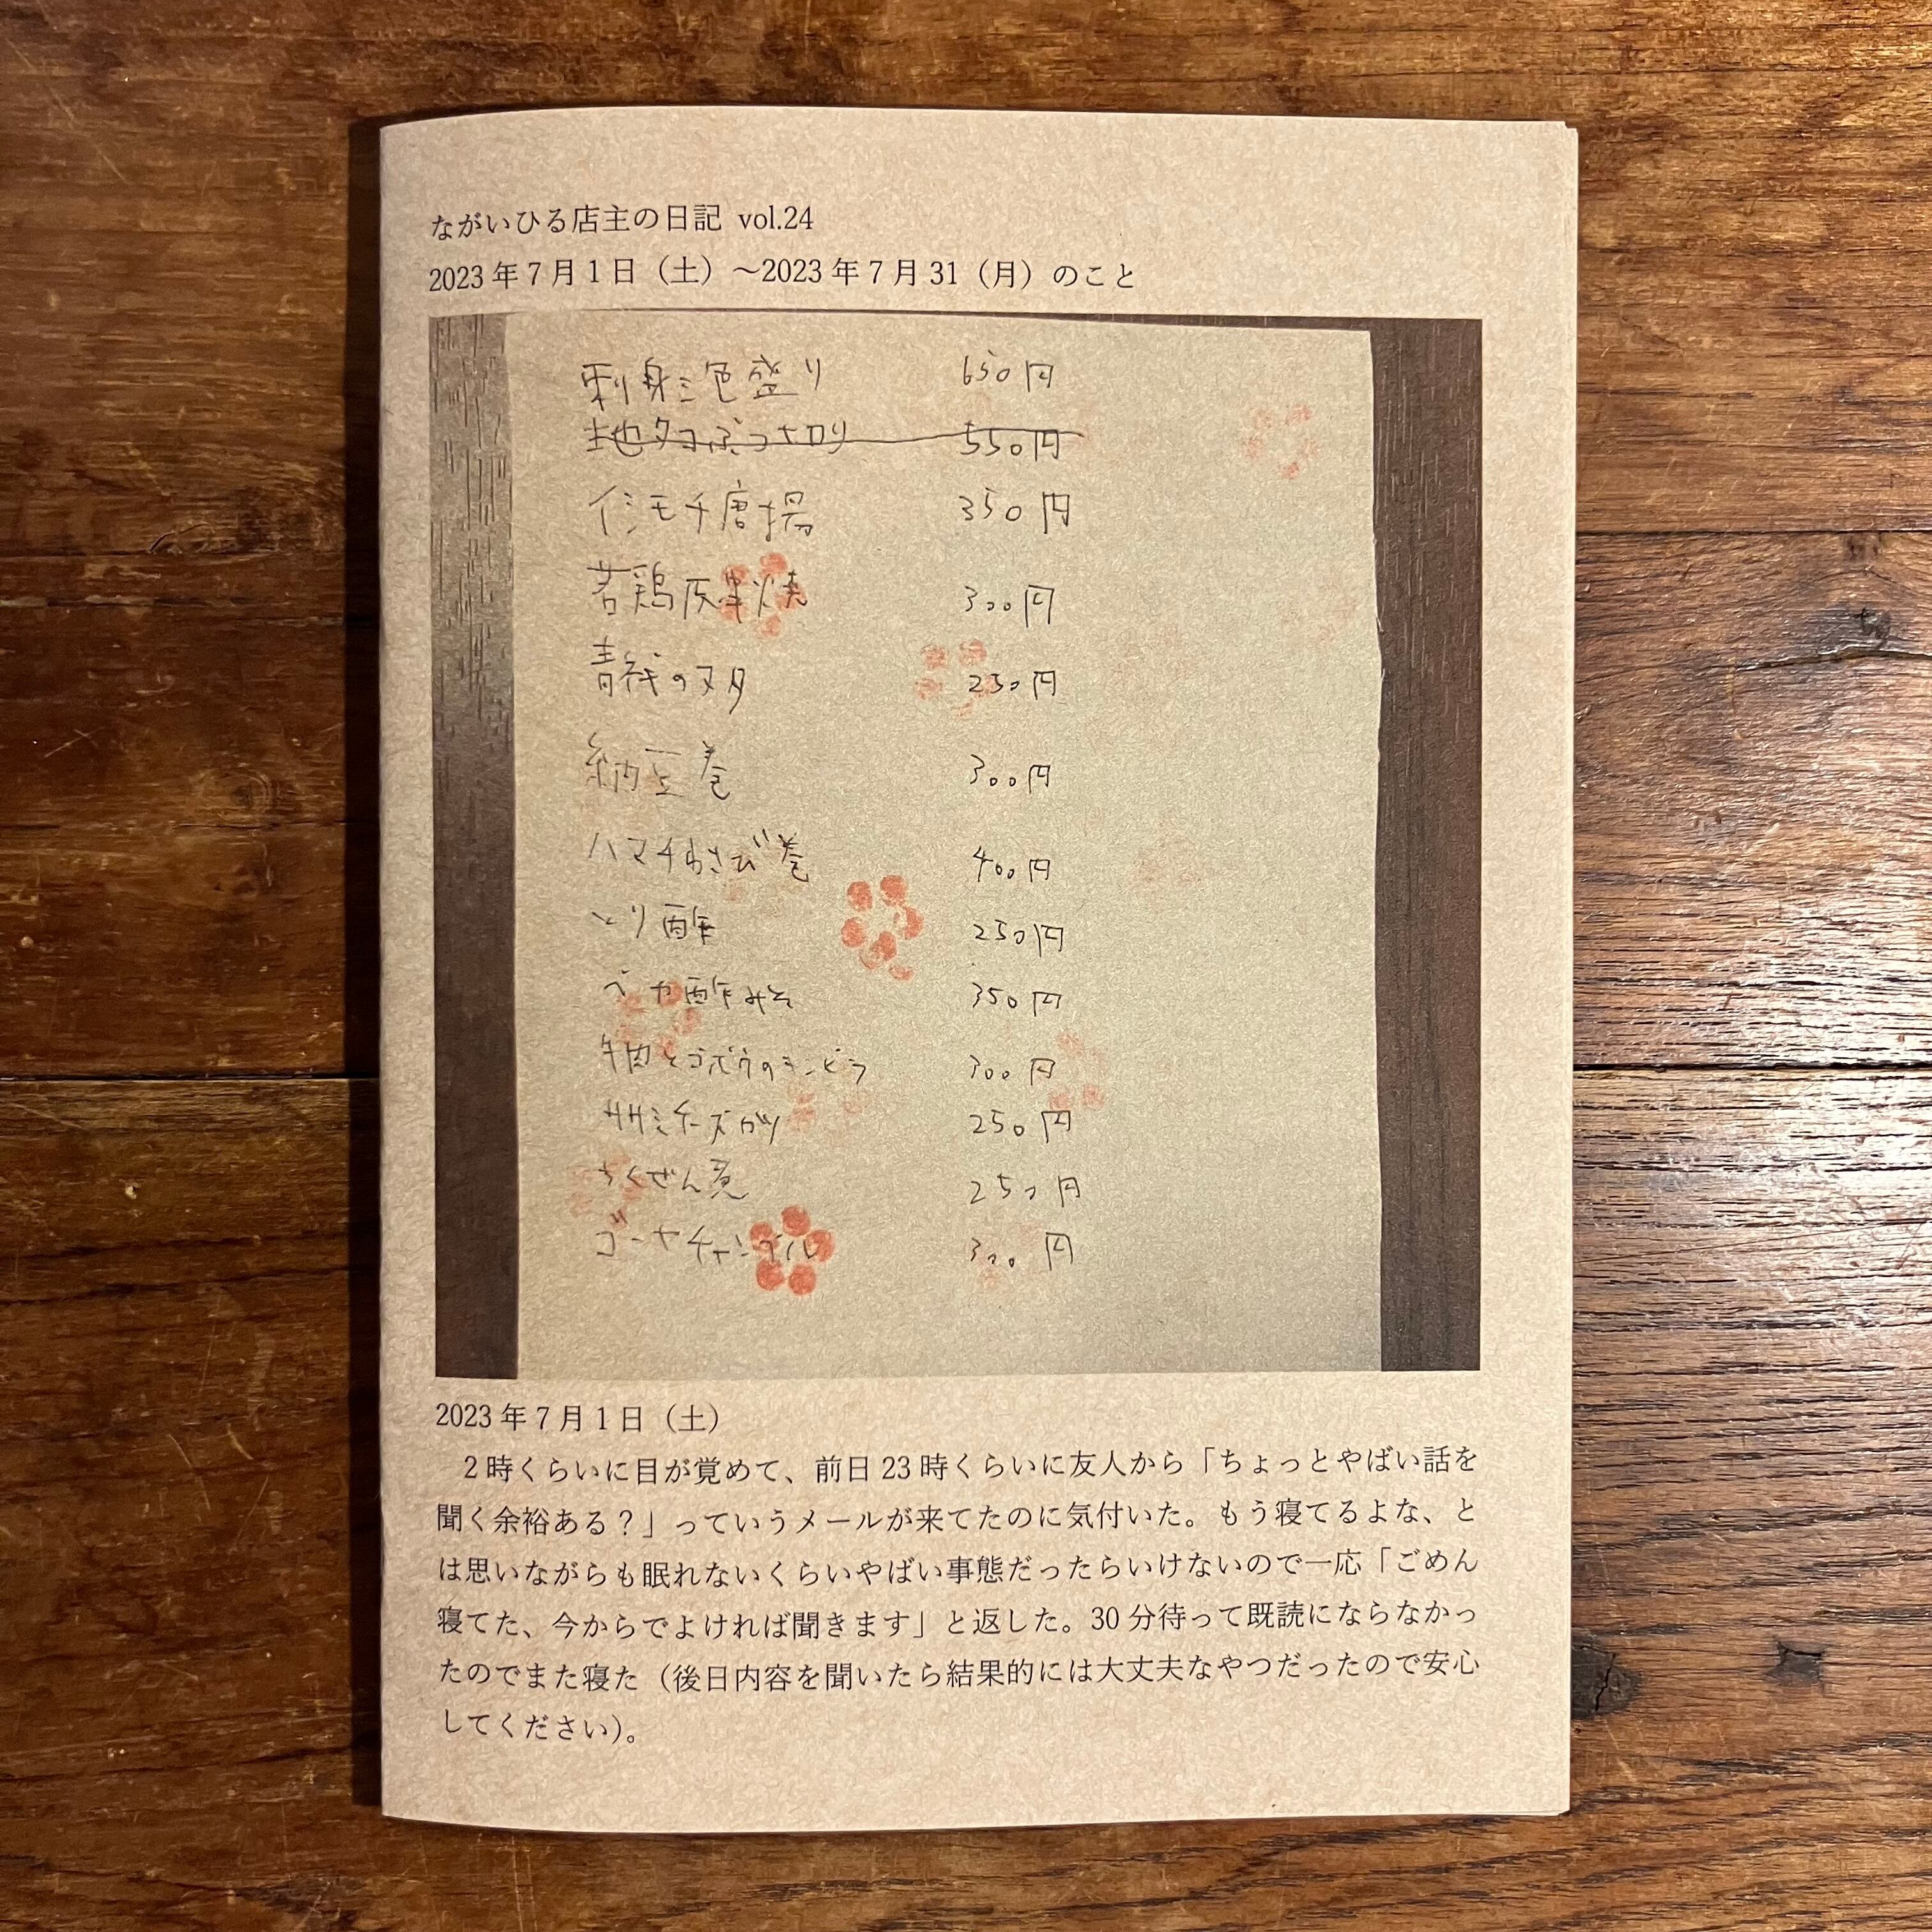 ながいひる店主の日記 vol.24
2023年7月1日（土）～2023年7月31（月）のこと
刺身三色盛り 650円
地タコぶつ切り 550円
イシモチ唐揚 350円
若鶏 焼 300円
青柳のヌタ 250円
納豆巻 300円
ハマチわさび巻 400円
とり酢 250円
酢みそ 350円
牛肉とゴボウのキンピラ 300円
ササミチーズカツ 250円
ちくぜん煮 250円
ゴーヤチャンプル 300円
2023年7月1日（土）
2時くらいに目が覚めて、前日23時くらいに友人から「ちょっとやばい話を
聞く余裕ある？」っていうメールが来てたのに気付いた。もう寝てるよな、と
は思いながらも眠れないくらいやばい事態だったらいけないので一応「ごめん
寝てた、今からでよければ聞きます」と返した。30分待って既読にならなかっ
たのでまた寝た（後日内容を聞いたら結果的には大丈夫なやつだったので安心
してください）。